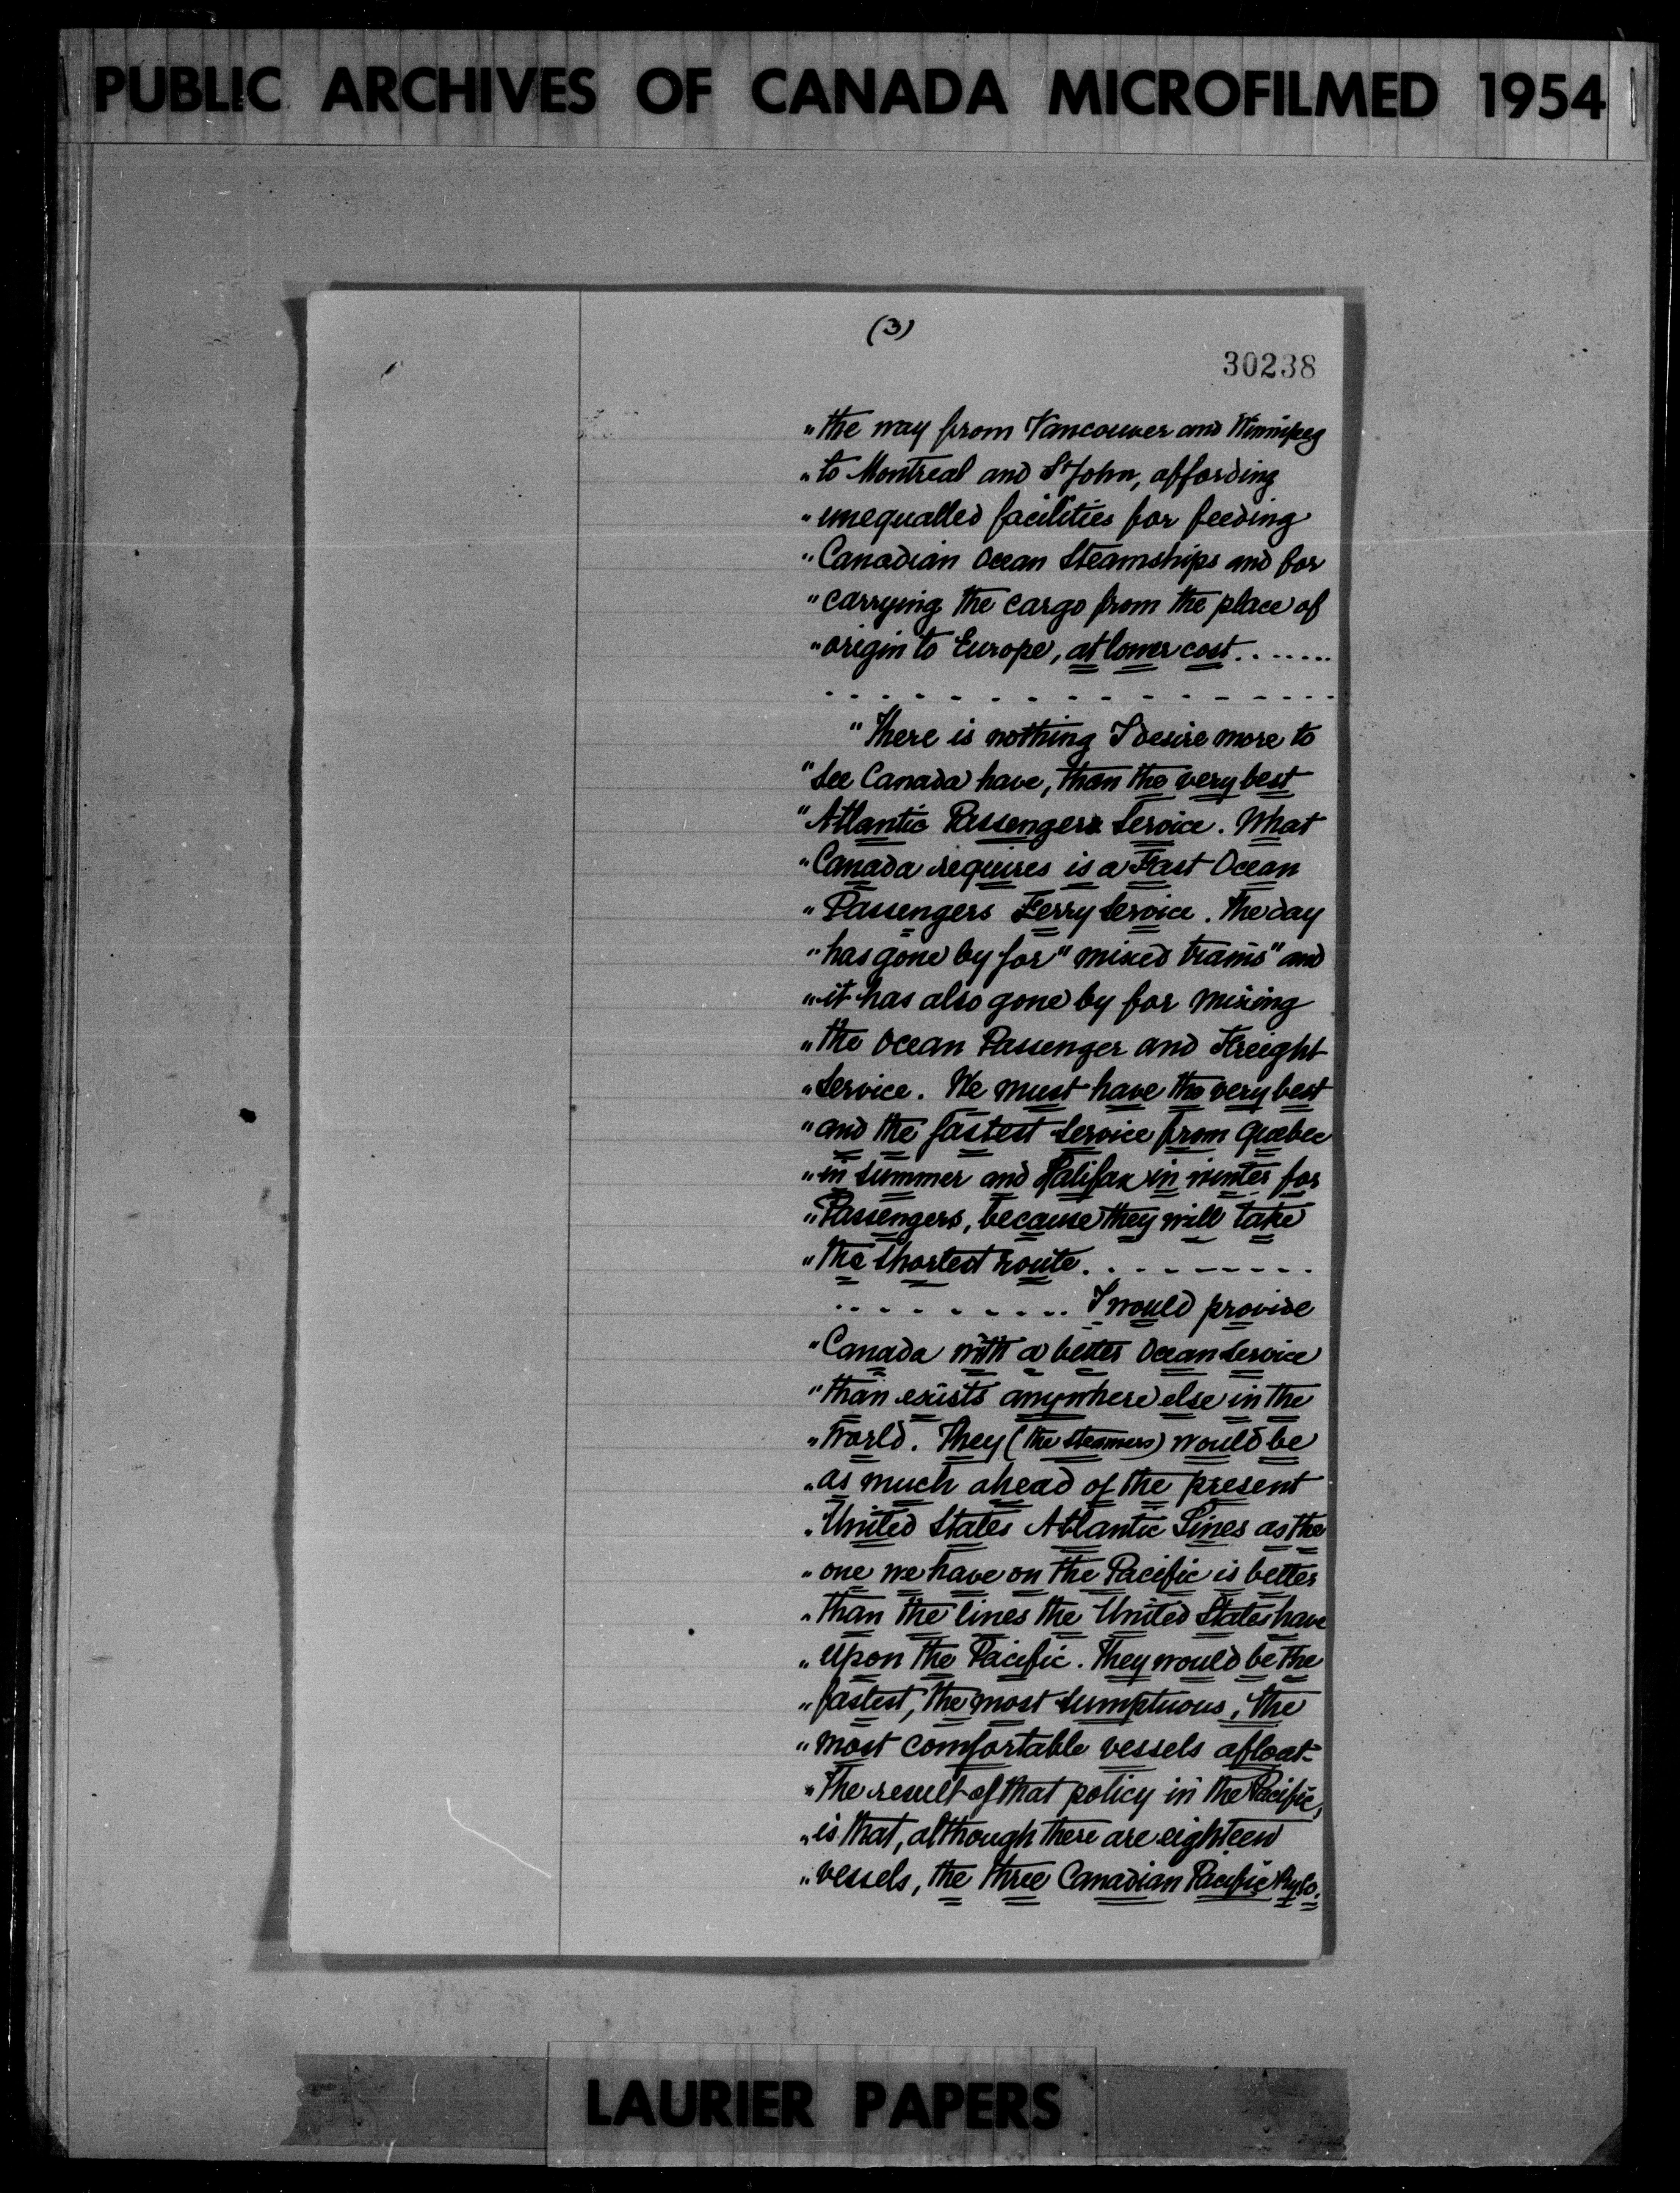 PUBLIC ARCHIVES OF CANADA MICROFILMED 1954
(3)
30238
"the way from Vancouver and Winnipeg
"to Montreal and St John, affording
"unequalled facilities for feeding
"Canadian Ocean Steamships and for
"carrying the cargo from the place of
"origin to Europe, at lower cost. . . . . . .
. . . . . . . . . . . . . . . .
"There is nothing I desire more to
"see Canada have, than the very best
"Atlantic Passenger Service. What
"Canada requires is a Fast Ocean
"Passengers Ferry Service. The day
"has gone by for "mixed trains" and
"it has also gone by for mixing
"the Ocean Passenger and Freight
"Service. We must have the very best
"and the fastest service from Quebec
"in summer and Halifax in winter for
"Passengers, because they will take
"the shortest route. . . . . . . . . .
. . . . . . . . . . I would provide
"Canada with a better Ocean Service
"than exists anywhere else in the
"World. They (the steamers) would be
"as much ahead of the present
"United States Atlantic Lines as the
"one we have on the Pacific is better
"than the lines the United States have
"upon the Pacific. They would be the
"fastest, the most sumptuous, the
"most comfortable vessels afloat-
"The result of that policy in the Pacific,
"is that, although there are eighteen
"vessels, the three Canadian Pacific Ry Co.
LAURIER PAPERS